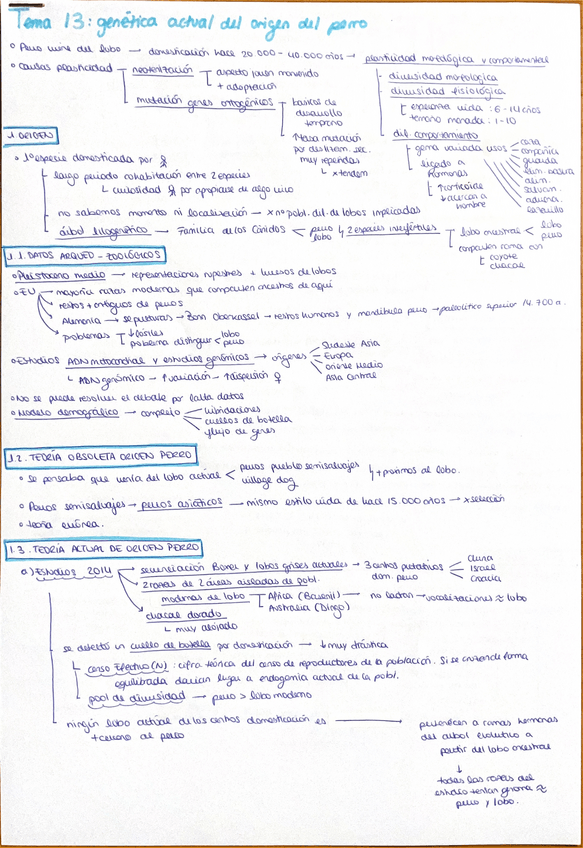 Tema 13: genética actual del origen del perro
• Perro viene del lobo → domesticación hace 20.000 - 40.000 años → plasticidad morfológica y comportamental
• Causas plasticidad
neotenización → aspecto joven mantenido
+ adopción
mutación genes ontogénicos
básicos de desarrollo temprano
↑ tasa mutación por
muy repetidas
↳ x tandem
diversidad morfológica
diversidad fisiológica
esperanza vida: 6-14 años
tamaño manada: 1-10
div. comportamiento
gama variada usos
caza
compañía
guarda
elim. basura
alim.
salvam.
aduana
lazarillo
ligado a hormonas
↑ corticoide
↓ acercan a hombre
1. ORIGEN
• 1ª especie domesticada por
largo periodo cohabitación entre 2 especies
↳ curiosidad por apropiarse de algo vivo
no sabemos momento ni localización → x nº pobl. dif. de lobos implicadas
árbol filogenético → Familia de los Cánidos < perro lobo ↳ 2 especies interfértiles
lobo ancestral < lobo perro
comparten rama con
coyote
chacal
1.1. DATOS ARQUEO-ZOOLÓGICOS
• Pleistoceno medio → representaciones rupestres + huesos de lobos
• EU → mayoría razas modernas que comparten ancestros de aquí
restos + antiguos de perros
Alemania → sepulturas → Bonn Oberkassel → restos humanos y mandíbula perro → paleolítico superior 14.700 a.
problemas
↓ fósiles
problema distinguir < lobo perro
• Estudios ADN mitocondrial y estudios genómicos → orígenes
Sudeste Asia
Europa
Oriente Medio
Asia Central
↳ ADN genómico → ↑ variación → ↑ dispersión
• No se puede resolver el debate por falta datos
• Modelo demográfico → complejo
hibridaciones
cuellos de botella
flujo de genes
1.2. TEORÍA OBSOLETA ORIGEN PERRO
• Se pensaba que venía del lobo actual < perros pueblo semisalvajes village dog ↳ + próximos al lobo.
• Perros semisalvajes → perros asiáticos → mismo estilo vida de hace 15.000 años → x selección
• teoría errónea.
1.3. TEORÍA ACTUAL DE ORIGEN PERRO
a) Estudios 2014
secuenciación Boxer y lobos grises actuales → 3 centros putativos dom. perro
China
Israel
Croacia
2 razas de 2 áreas aisladas de pobl.
modernas de lobo
África (Basenji)
Australia (Dingo)
→ no ladran → vocalizaciones ≈ lobo
chacal dorado
↳ muy alejado
se detectó un cuello de botella por domesticación → ↓ muy drástica
censo efectivo (N): cifra teórica del censo de reproductores de la población. Si se cruzan de forma
equilibrada darían lugar a endogamia actual de la pobl.
pool de diversidad → perro > lobo moderno
ningún lobo actual de los centros domesticación es
+ cercano al perro
→ pertenecen a ramas hermanas
del árbol evolutivo a
partir del lobo ancestral
↓
todas las razas del
estudio tenían genoma ≈
perro y lobo.